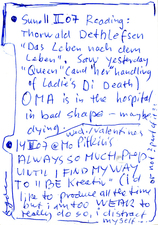 Sun 11 II 07 Reading:
Thorwald Dethlefsen
"Das Leben nach dem
Leben", Saw yesterday
"Queen" (and her handling
of Ladie's Di Death)
OMA is in the hospital
in bad shape - maybe
dying. wed./Valentines
14 II 07 @ Mo Pitkins
ALWAYS SO MUCH PREP
UNTIL I FIND MY WAY
TO "BE Kreativ" (I'd
like to produce all the time
but I am too WEAK to
really do so, i distract
myself